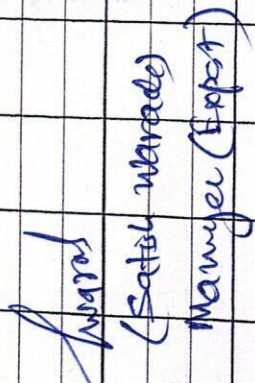 (Satish Warade)
Manager (Export)